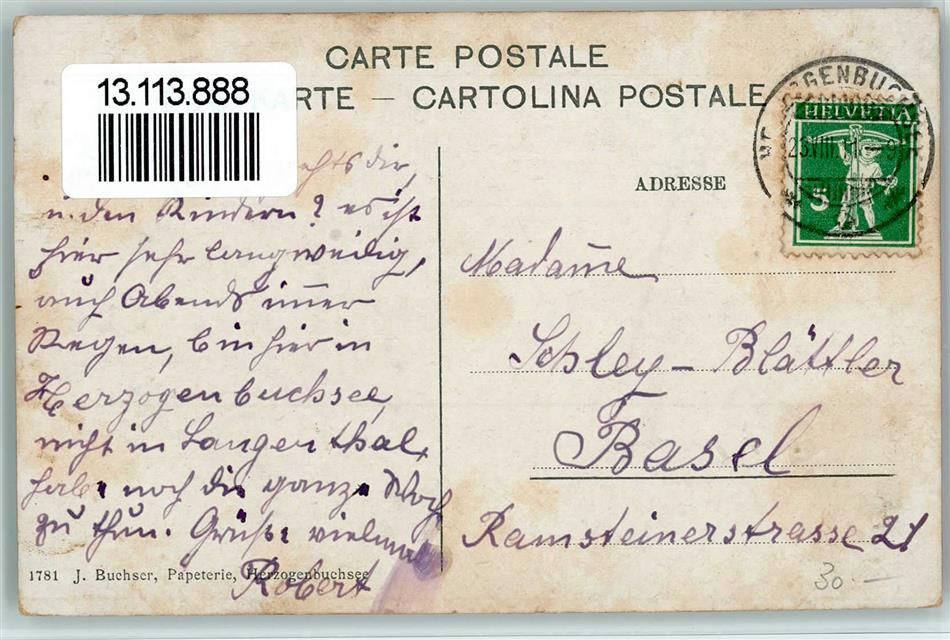 CARTE POSTALE
13.113.888
ARTE — CARTOLINA POSTALE
HELVETIA
5
ADRESSE
chts dir,
u. den Kindern? es ist
hier sehr langweilig,
auch Abends immer
Regen, bin hier in
Herzogenbuchsee,
nicht in Langenthal,
habe noch die ganze Woch
zu thun. Grüße vielmal
Robert
Madame
Schley-Blättler
Basel
Ramsteinerstrasse 21
1781 J. Buchser, Papeterie, Herzogenbuchsee
30.—